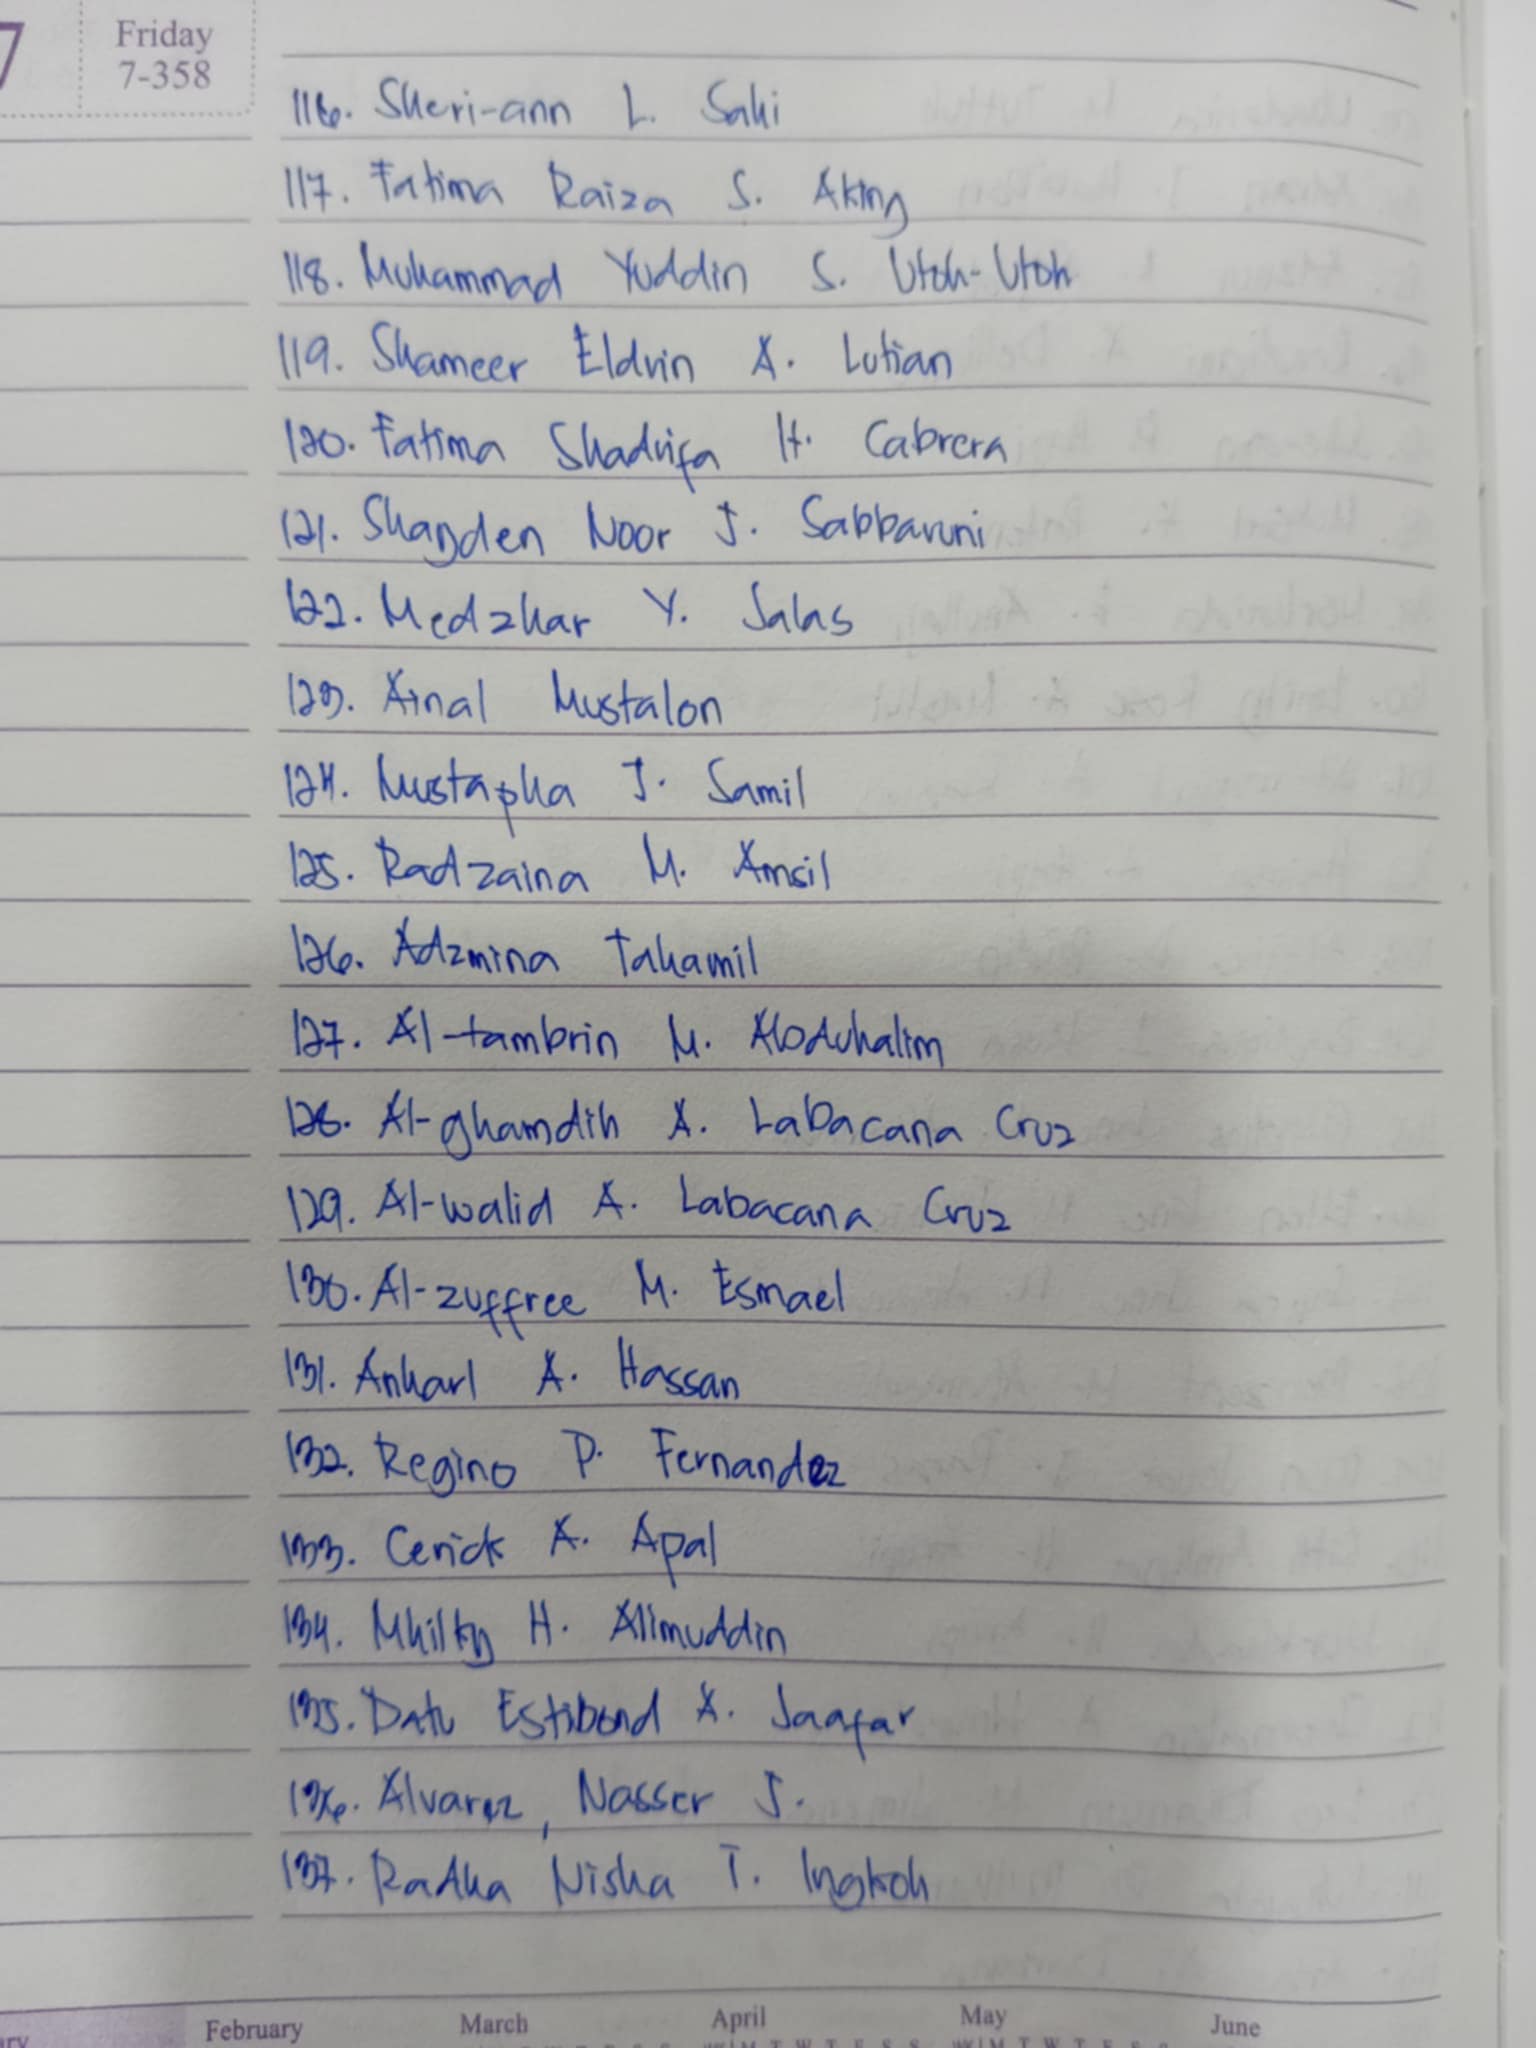 Friday
7-358
116. Sheri-ann L. Sahi
117. Fatima Raiza S. Aking
118. Muhammad Yuddin S. Utoh-Utoh
119. Shameer Eldrin A. Lutian
120. Fatima Shadrifa H. Cabrera
121. Shayden Noor J. Sabbaruni
122. Medzhar Y. Salas
123. Ainal Mustalon
124. Mustapha J. Samil
125. Radzaina M. Amsil
126. Adzmina Tahamil
127. Al-tambrin M. Abduhalim
128. Al-ghamdih A. Labacana Cruz
129. Al-walid A. Labacana Cruz
130. Al-zuffree M. Esmael
131. Anharl A. Hassan
132. Regino P. Fernandez
133. Cerick A. Apal
134. Mhilky H. Alimuddin
135. Datu Estibend A. Jaafar
136. Alvarez, Nasser J.
137. Radha Nisha T. Ingkoh
February March April May June